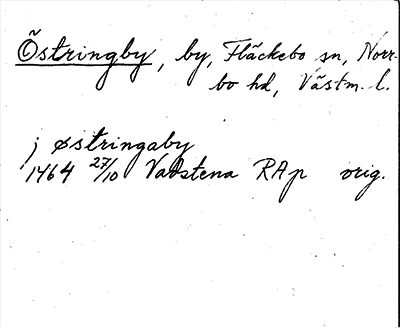 Östringby, by, Fläckebo sn, Norr-
bo hd, Västm. l.
j østringaby
1464 27/10 Vadstena RAp orig.